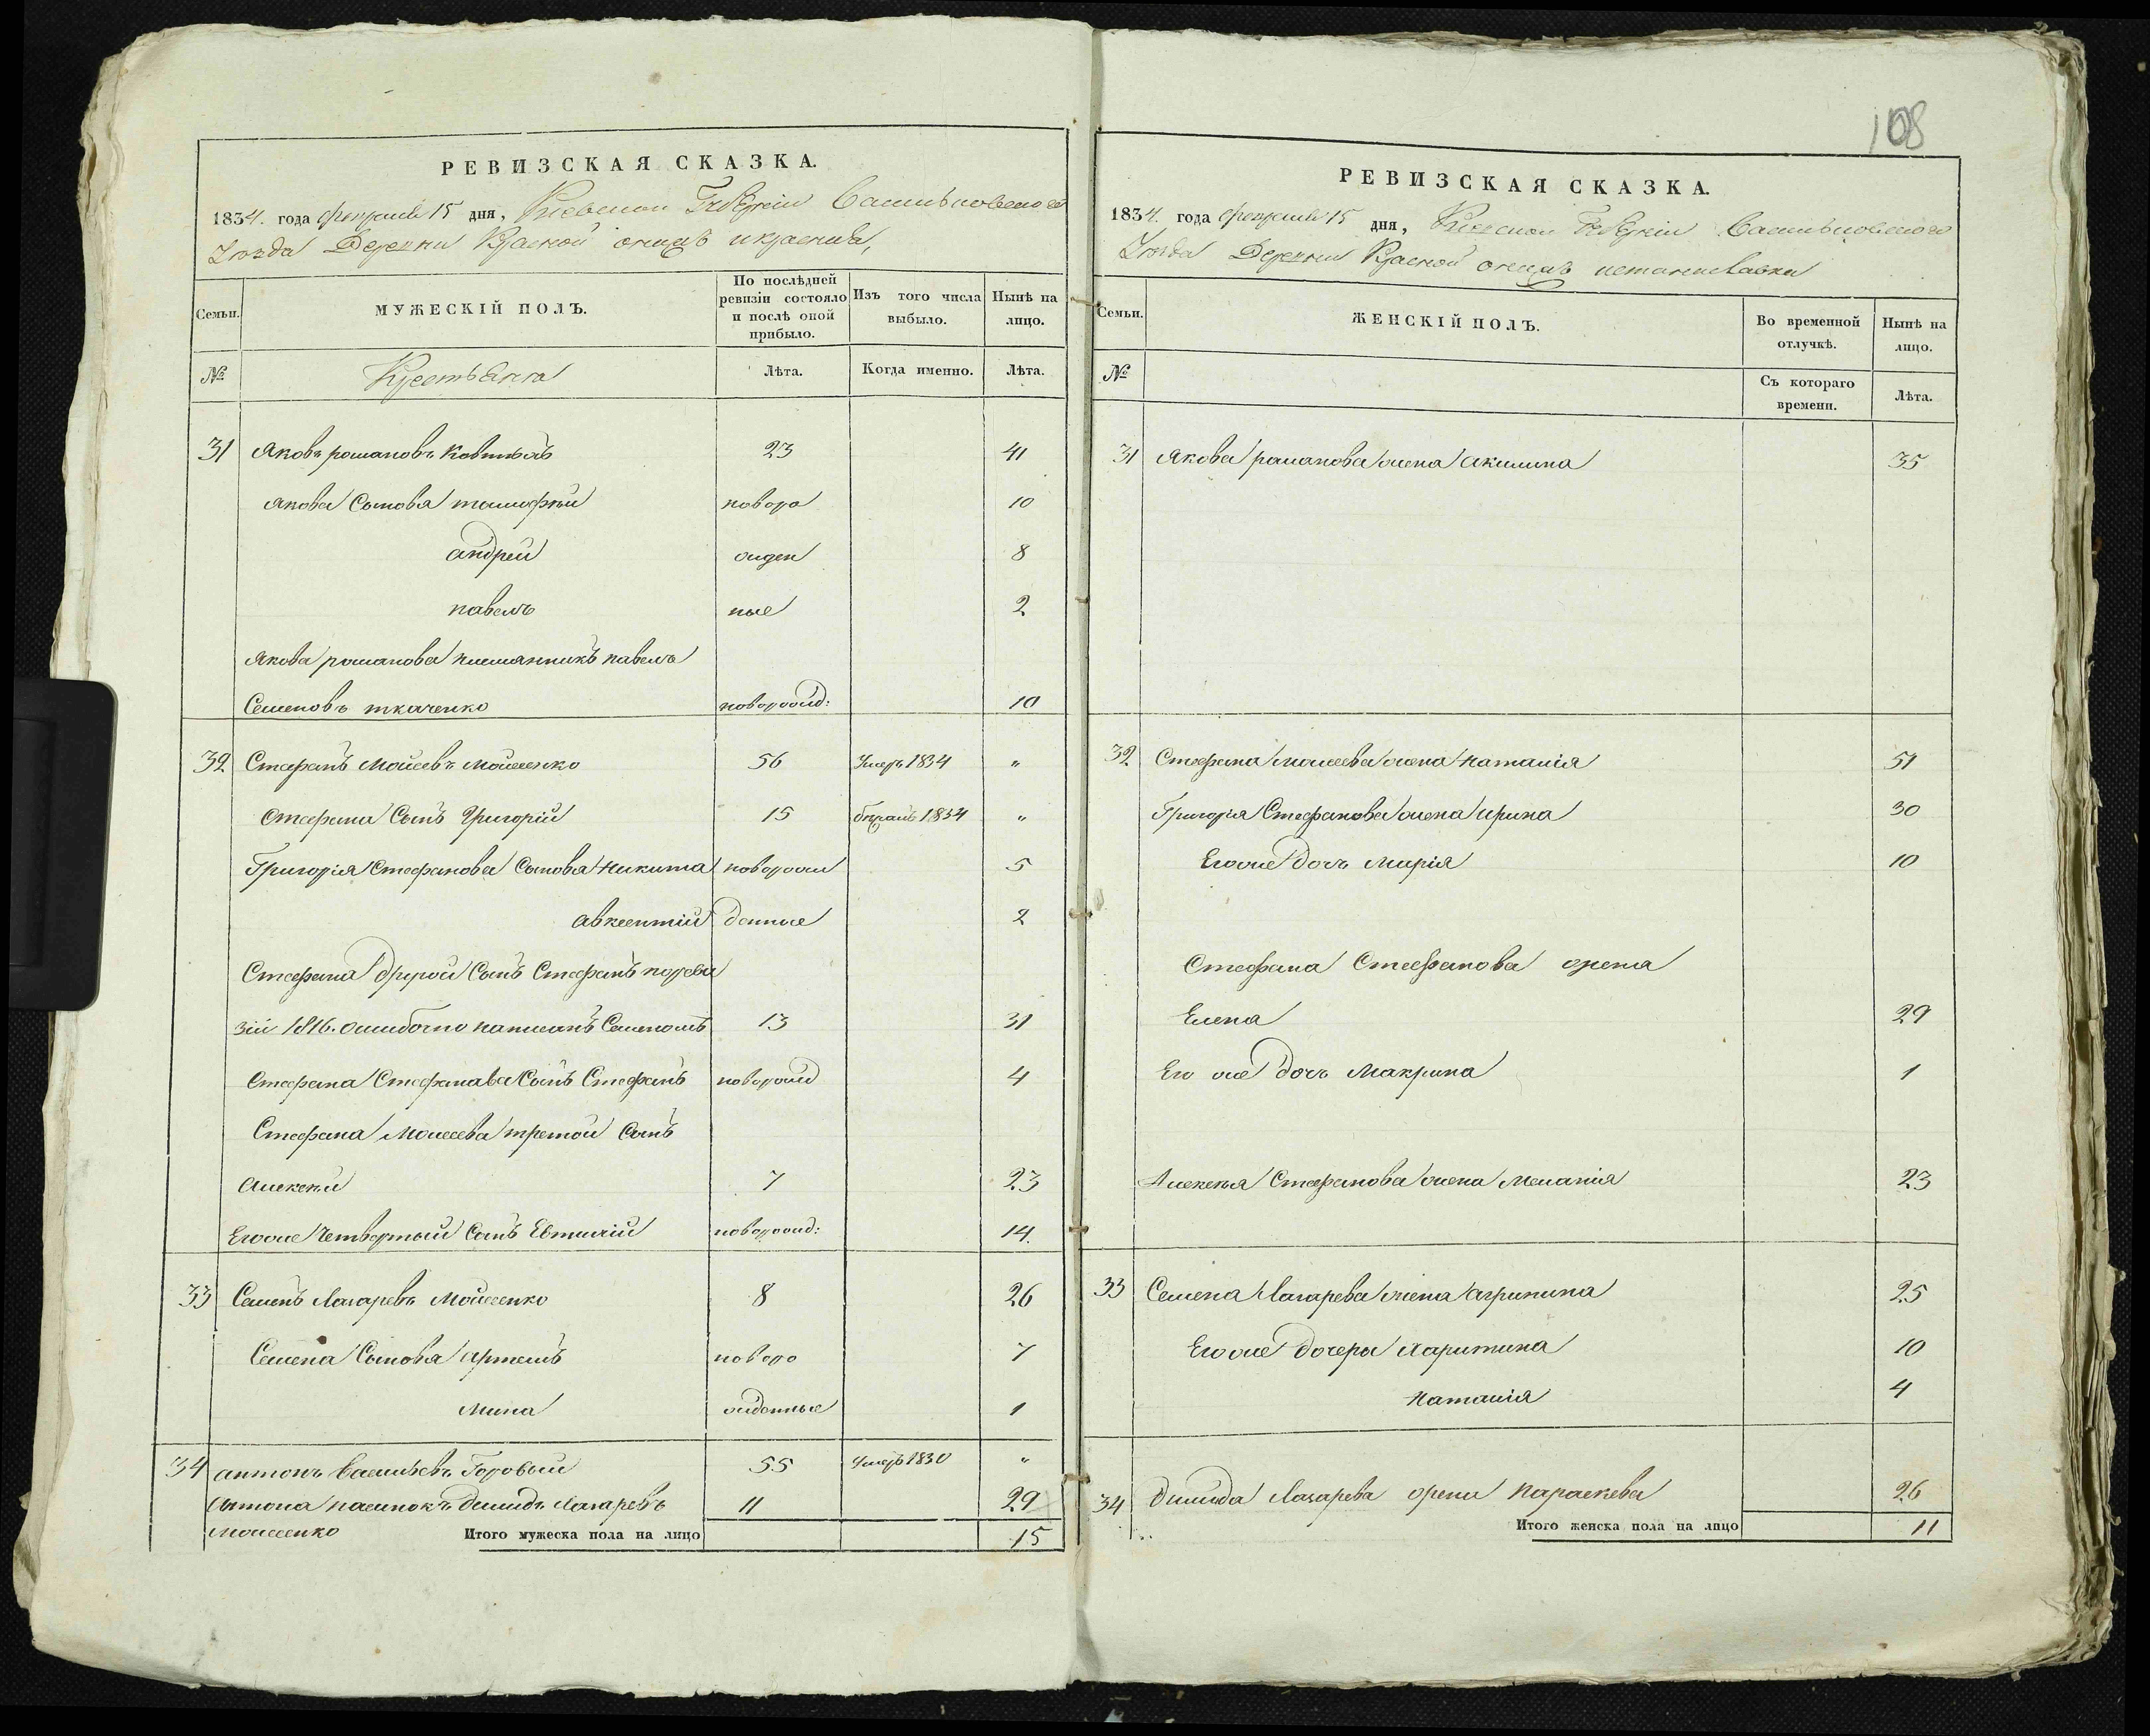 108
РЕВИЗСКАЯ СКАЗКА.
1834. года февраля 15 дня, Киевской Губерніи Васильковского
Уезда Деревни Красной онаяъ
Семьи.
МУЖЕСКІЙ ПОЛЪ.
По послѣдней ревизіи состояло и послѣ оной прибыло.
Изъ того числа выбыло.
Нынѣ на лицо.
№
Крестьяна
Лѣта.
Когда именно.
Лѣта.
31 Яковъ романовъ Ковтъ 23 41
Якова Сыновья тимофѣй новоро 10
андрей жден 8
павелъ ные 2
Якова романова племянникъ павелъ
Семеновъ ткаченко новорожд: 10
32 Стефанъ Моисеевъ Мойсеенко 56 Умеръ 1834 "
Стефана Сынъ Григорій 15 бтранъ 1834 "
Григорія Стефанова Сыновья Никита новорож 5
авксентій денные 2
Стефана другой Сынъ Стефанъ порева
зіи 1816. ошибочно написанъ Семеномъ 13 31
Стефана Стефанава Сынъ Стефанъ новорожд 4
Стефана Моисеева третой Сынъ
Алексѣй 7 23
Егоже Четвертый Сынъ Евтихій новорожд: 14.
33 Семенъ Лазаревъ Мойсеенко 8 26
Семена Сыновья Артемъ новоро 7
Мина жденные 1
34 антонъ Васильевъ Горовый 55 Умеръ 1830 "
Антона пасинокъ Димидъ Лазаревъ 11 29
Моисеенко Итого мужеска пола на лицо 15
РЕВИЗСКАЯ СКАЗКА.
1834. года февраля 15 дня, Киевской Губерніи Васильковского
Уезда Деревни Красной онаяъ
Семьи.
ЖЕНСКІЙ ПОЛЪ.
Во временной отлучкѣ.
Нынѣ на лицо.
№
Съ котораго времени.
Лѣта.
31 Якова романова жена Акилина 35
32 Стефана Моисеева жена Наталія 51
Григорія Стефанова жена Ирина 30
Егоже дочь Марія 10
Стефана Стефанова жена
Елена 29
Его же дочь Макрина 1
Алексѣя Стефанова жена Меланія 23
33 Семена Лазарева жена Агрипина 25
Егоже дочеры Харитина 10
Наталія 4
34 Димида Лазарева жена Параскева 26
Итого женска пола на лицо 11